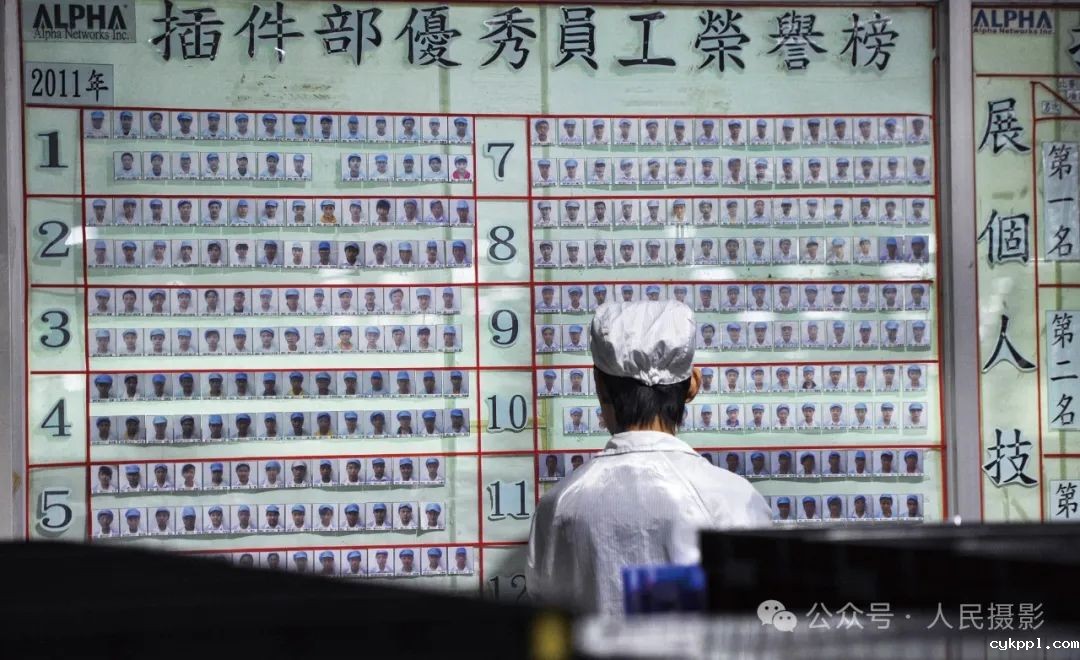 ALPHA
Alpha Networks Inc.
插件部優秀員工榮譽榜
2011年
1
2
3
4
5
7
8
9
10
11
12
ALPHA
Alpha Networks Inc.
展個人技
第一名
第二名
第
公众号·人民摄影
cykppl.com